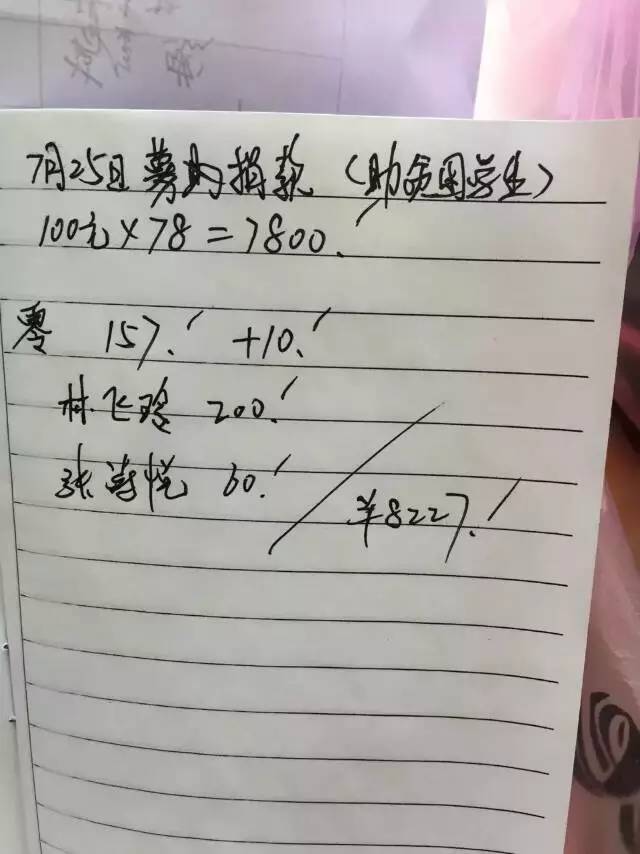 7月25日募购捐款(助贫困学生)
100元×78=7800.
零 157. +10.
林飞玲 200.
张诗悦 60.
¥8227.